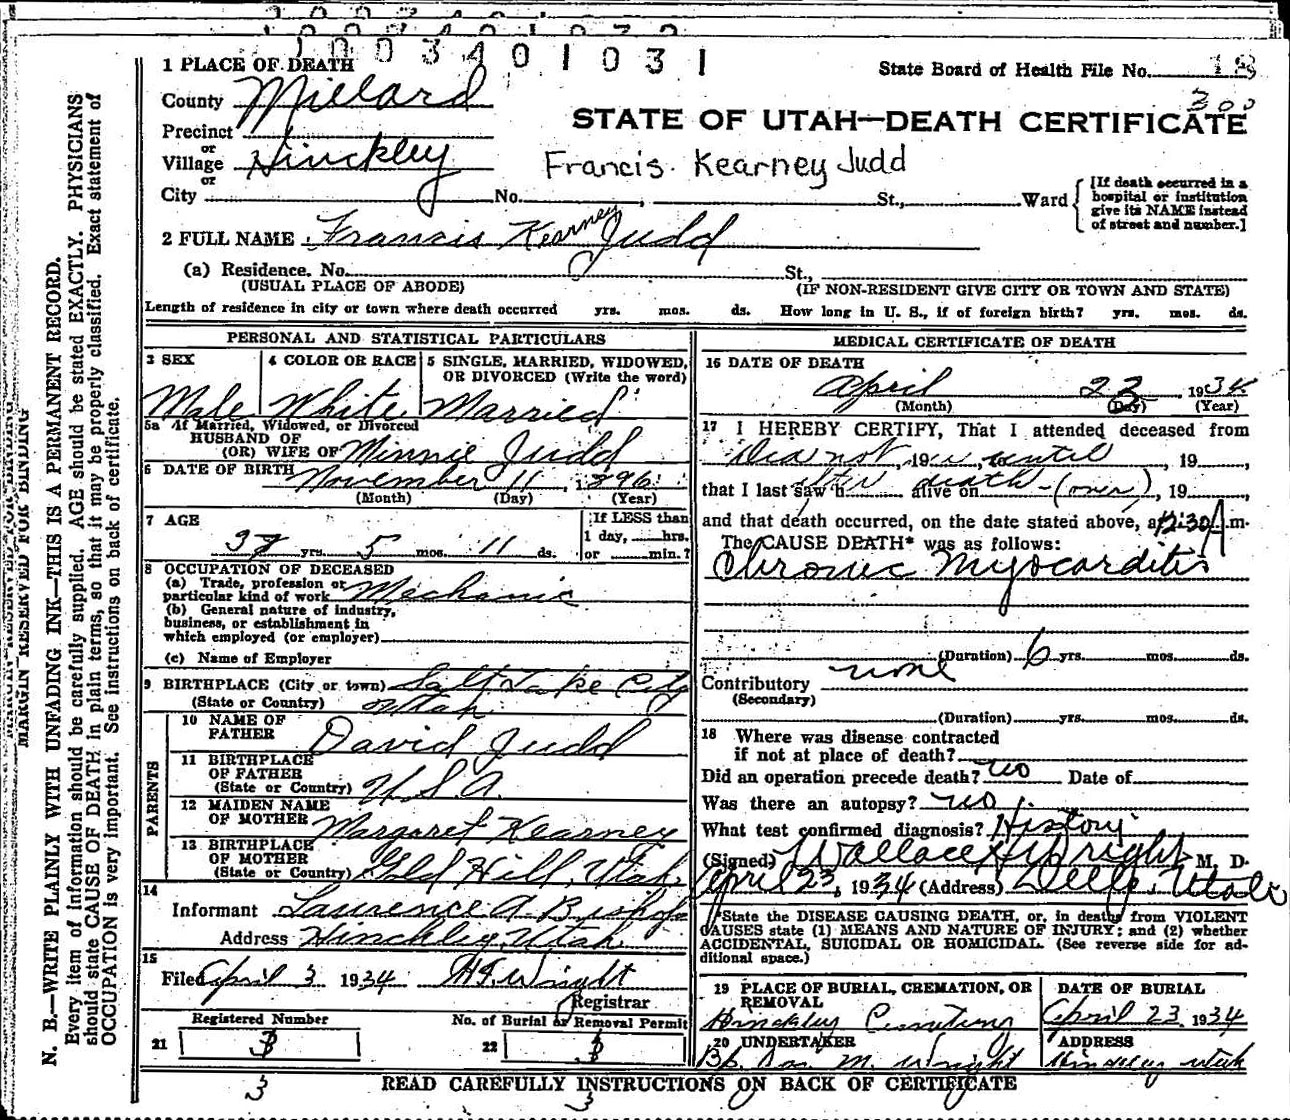 1003401031
1 PLACE OF DEATH
State Board of Health File No. 18
300
County Millard
STATE OF UTAH—DEATH CERTIFICATE
Precinct
or
Village Hinckley
Francis Kearney Judd
or
City No. St., Ward
[If death occurred in a
hospital or institution
give its NAME instead
of street and number.]
2 FULL NAME Francis Kearney Judd
(a) Residence. No. St.,
(USUAL PLACE OF ABODE) (IF NON-RESIDENT GIVE CITY OR TOWN AND STATE)
Length of residence in city or town where death occurred yrs. mos. ds. How long in U. S., if of foreign birth? yrs. mos. ds.
PERSONAL AND STATISTICAL PARTICULARS
3 SEX 4 COLOR OR RACE 5 SINGLE, MARRIED, WIDOWED,
OR DIVORCED (Write the word)
Male White Married
5a If Married, Widowed, or Divorced
HUSBAND OF
(OR) WIFE OF Minnie Judd
6 DATE OF BIRTH November 11, 1896
(Month) (Day) (Year)
7 AGE
37 yrs. 5 mos. 11 ds.
If LESS than
1 day, hrs.
or min.?
8 OCCUPATION OF DECEASED
(a) Trade, profession or
particular kind of work Mechanic
(b) General nature of industry,
business, or establishment in
which employed (or employer)
(c) Name of Employer
9 BIRTHPLACE (City or town) Salt Lake City
(State or Country) Utah
PARENTS
10 NAME OF
FATHER David Judd
11 BIRTHPLACE
OF FATHER
(State or Country) U.S.A
12 MAIDEN NAME
OF MOTHER Margaret Kearney
13 BIRTHPLACE
OF MOTHER
(State or Country) Gold Hill, Utah
14
Informant Laurence A Bishop
Address Hinckley, Utah
15
Filed April 3 1934 H.F. Wright
Registrar
Registered Number No. of Burial or Removal Permit
21 3 22 3
MEDICAL CERTIFICATE OF DEATH
16 DATE OF DEATH
April 23, 1934
(Month) (Day) (Year)
17 I HEREBY CERTIFY, That I attended deceased from
Did not, 19 until, 19,
that I last saw h after alive on death - (over), 19,
and that death occurred, on the date stated above, at 12:30 A m.
The CAUSE DEATH* was as follows:
Chronic Myocarditis
(Duration) 6 yrs. mos. ds.
Contributory none
(Secondary)
(Duration) yrs. mos. ds.
18 Where was disease contracted
if not at place of death?
Did an operation precede death? no Date of
Was there an autopsy? no
What test confirmed diagnosis? History
(Signed) Wallace H Wright M. D.
April 23, 1934 (Address) Delta, Utah
*State the DISEASE CAUSING DEATH, or, in deaths from VIOLENT
CAUSES state (1) MEANS AND NATURE OF INJURY; and (2) whether
ACCIDENTAL, SUICIDAL OR HOMICIDAL. (See reverse side for ad-
ditional space.)
19 PLACE OF BURIAL, CREMATION, OR
REMOVAL
Hinckley Cemetery
DATE OF BURIAL
April 23 1934
20 UNDERTAKER
Bp. M. Wright
ADDRESS
Hinckley Utah
READ CAREFULLY INSTRUCTIONS ON BACK OF CERTIFICATE
3 3
MARGIN RESERVED FOR BINDING
N. B.—WRITE PLAINLY WITH UNFADING INK—THIS IS A PERMANENT RECORD.
Every item of information should be carefully supplied. AGE should be stated EXACTLY. PHYSICIANS
should state CAUSE OF DEATH in plain terms, so that it may be properly classified. Exact statement of
OCCUPATION is very important. See instructions on back of certificate.